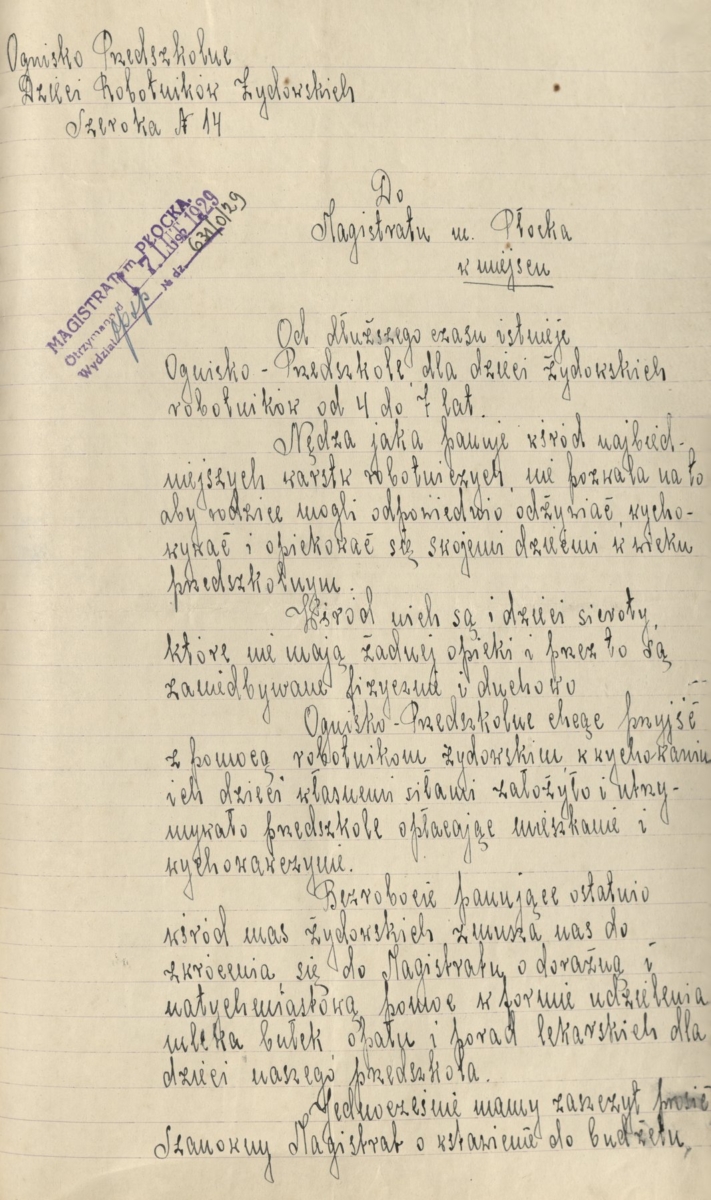 Ognisko Przedszkolne
Dzieci Robotników Żydowskich
Szeroka № 14
Do
Magistratu m. Płocka
w miejscu
MAGISTRAT m. PŁOCKA
Otrzymano d. 17 1929
Wydział № dz. 6310/29
Od dłuższego czasu istnieje
Ognisko-Przedszkole, dla dzieci żydowskich
robotników od 4 do 7 lat.
Nędza jaka panuje wśród najbied-
niejszych warstw robotniczych, nie pozwala na to
aby rodzice mogli odpowiednio odżywiać, wycho-
wywać i opiekować się swojemi dziećmi w wieku
przedszkolnym.
Wśród nich są i dzieci sieroty,
które nie mają żadnej opieki i przez to są
zaniedbywane fizycznie i duchowo
Ognisko-Przedszkolne chcąc przyjść
z pomocą robotnikom żydowskim w wychowaniu
ich dzieci własnemi siłami założyło i utrzy-
mywało przedszkole opłacając mieszkanie i
wychowawczynie.
Bezrobocie panujące ostatnio
wśród mas żydowskich zmusza nas do
zwrócenia się do Magistratu o doraźną i
natychmiastową pomoc w formie udzielenia
mleka bułek, opału i porad lekarskich dla
dzieci naszego przedszkola.
Jednocześnie mamy zaszczyt prosić
Szanowny Magistrat o wstawienie do budżetu,